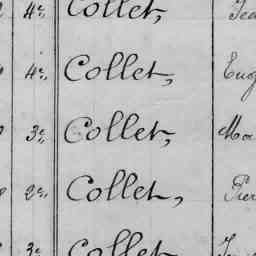 4e, Collet,
4e, Collet, Eug
3e, Collet, Ma
2e, Collet, Pier
3e, Collet,